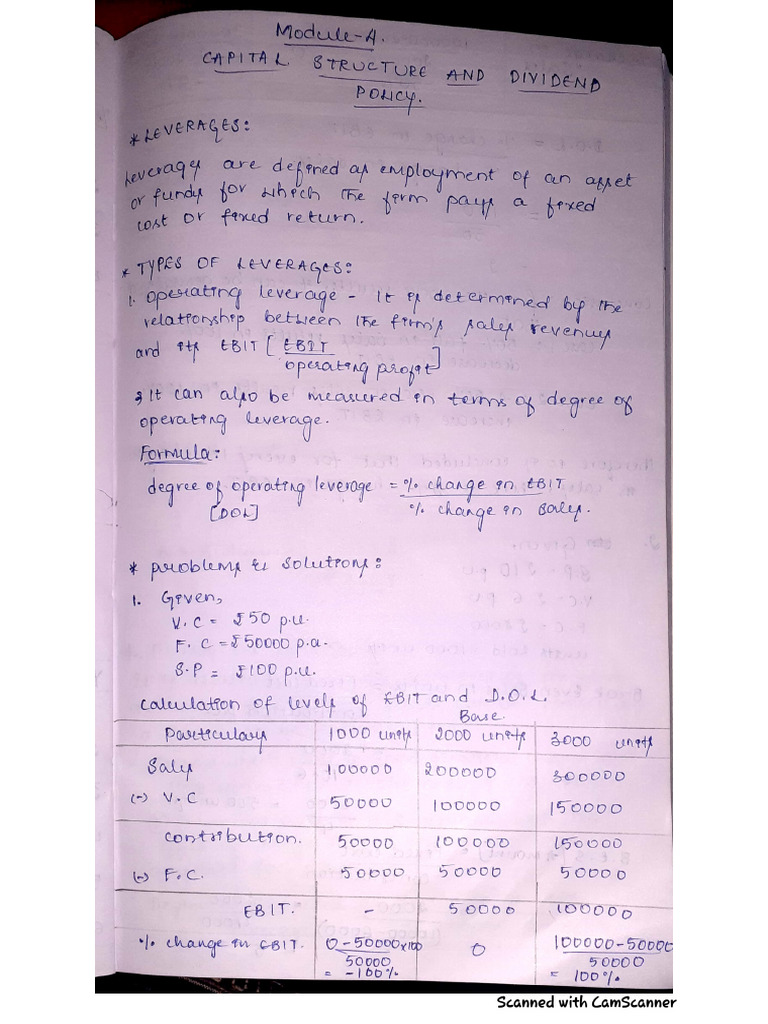 Module-4.
CAPITAL STRUCTURE AND DIVIDEND
POLICY.
* LEVERAGES:
Leverages are defined as employment of an asset
or funds for which the firm pays a fixed
cost or fixed return.
* TYPES OF LEVERAGES:
1. Operating leverage - It is determined by the
relationship between the firm's sales revenues
and its EBIT [ EBIT
operating profit ]
It can also be measured in terms of degree of
operating leverage.
Formula:
degree of operating leverage = % change in EBIT
[DOL] % change in sales.
* Problems & solutions:
1. Given,
V.C = ₹50 p.u.
F.C = ₹50000 p.a.
S.P = ₹100 p.u.
Calculation of levels of EBIT and D.O.L.
Base.
Particulars 1000 units 2000 units 3000 units
Sales 1,00000 200000 300000
(-) V.C 50000 100000 150000
Contribution. 50000 100000 150000
(-) F.C. 50000 50000 50000
EBIT. - 50000 100000
% change in EBIT. 0-50000 x100 0 100000-50000
50000 50000
= -100% = 100%
Scanned with CamScanner